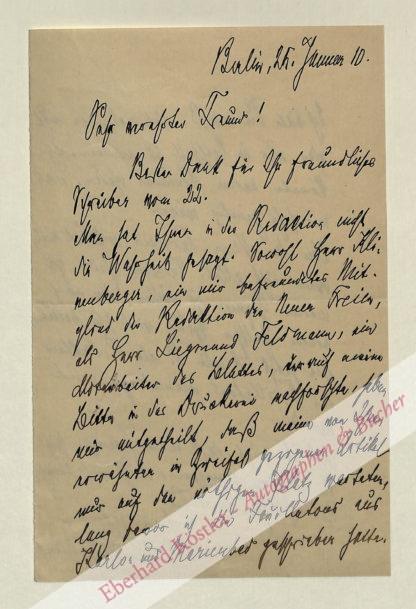 Berlin, 25. Januar 10.
Sehr verehrter Freund!
Besten Dank für Ihr freundliches
Schreiben vom 22.
Man hat Ihnen in der Redaction nicht
die Wahrheit gesagt. Sowohl Herr Kli-
nenberger, ein mir befreundetes Mit-
glied der Redaktion der Neuen Freien,
als Herr Siegmund Feldmann, ein
Mitarbeiter des Blattes, der auf meine
Bitte in der Druckerei nachforschte, haben
mir mitgetheilt, daß meine von Ihnen
erwähnten in Zweifel gezogenen Artikel
nur auf den nöthigen Platz warteten,
lang bevor ich die Feuilletons aus
Karlsbad und Marienbad geschrieben hatte.
Eberhard Köstler Autographen & Bücher